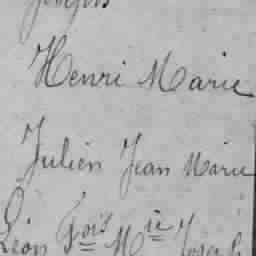 Henri Marie
Julien Jean Marie
Léon Fois Mie Joseph